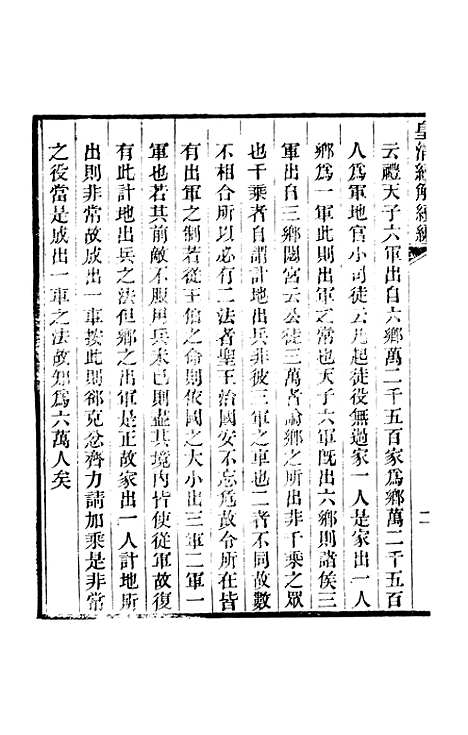 皇清經解續編
二
云禮天子六軍出自六鄉萬二千五百家爲鄉萬二千五百
人爲軍地官小司徒云凡起徒役無過家一人是家出一人
鄉爲一軍此則出軍之常也天子六軍旣出六鄉則諸侯三
軍出自三鄉閟宮云公徒三萬者論鄉之所出非千乘之眾
也千乘者自謂計地出兵非彼三軍之車也二者不同故數
不相合所以必有二法者聖王治國安不忘危故令所在皆
有出軍之制若從王伯之命則依國之大小出三軍二軍一
軍也若其前敵不服用兵未已則盡其境內皆使從軍故復
有此計地出兵之法但鄉之出軍是正故家出一人計地所
出則非常故成出一車按此則郤克忿齊力請加乘是非常
之役當是成出一軍之法故知爲六萬人矣